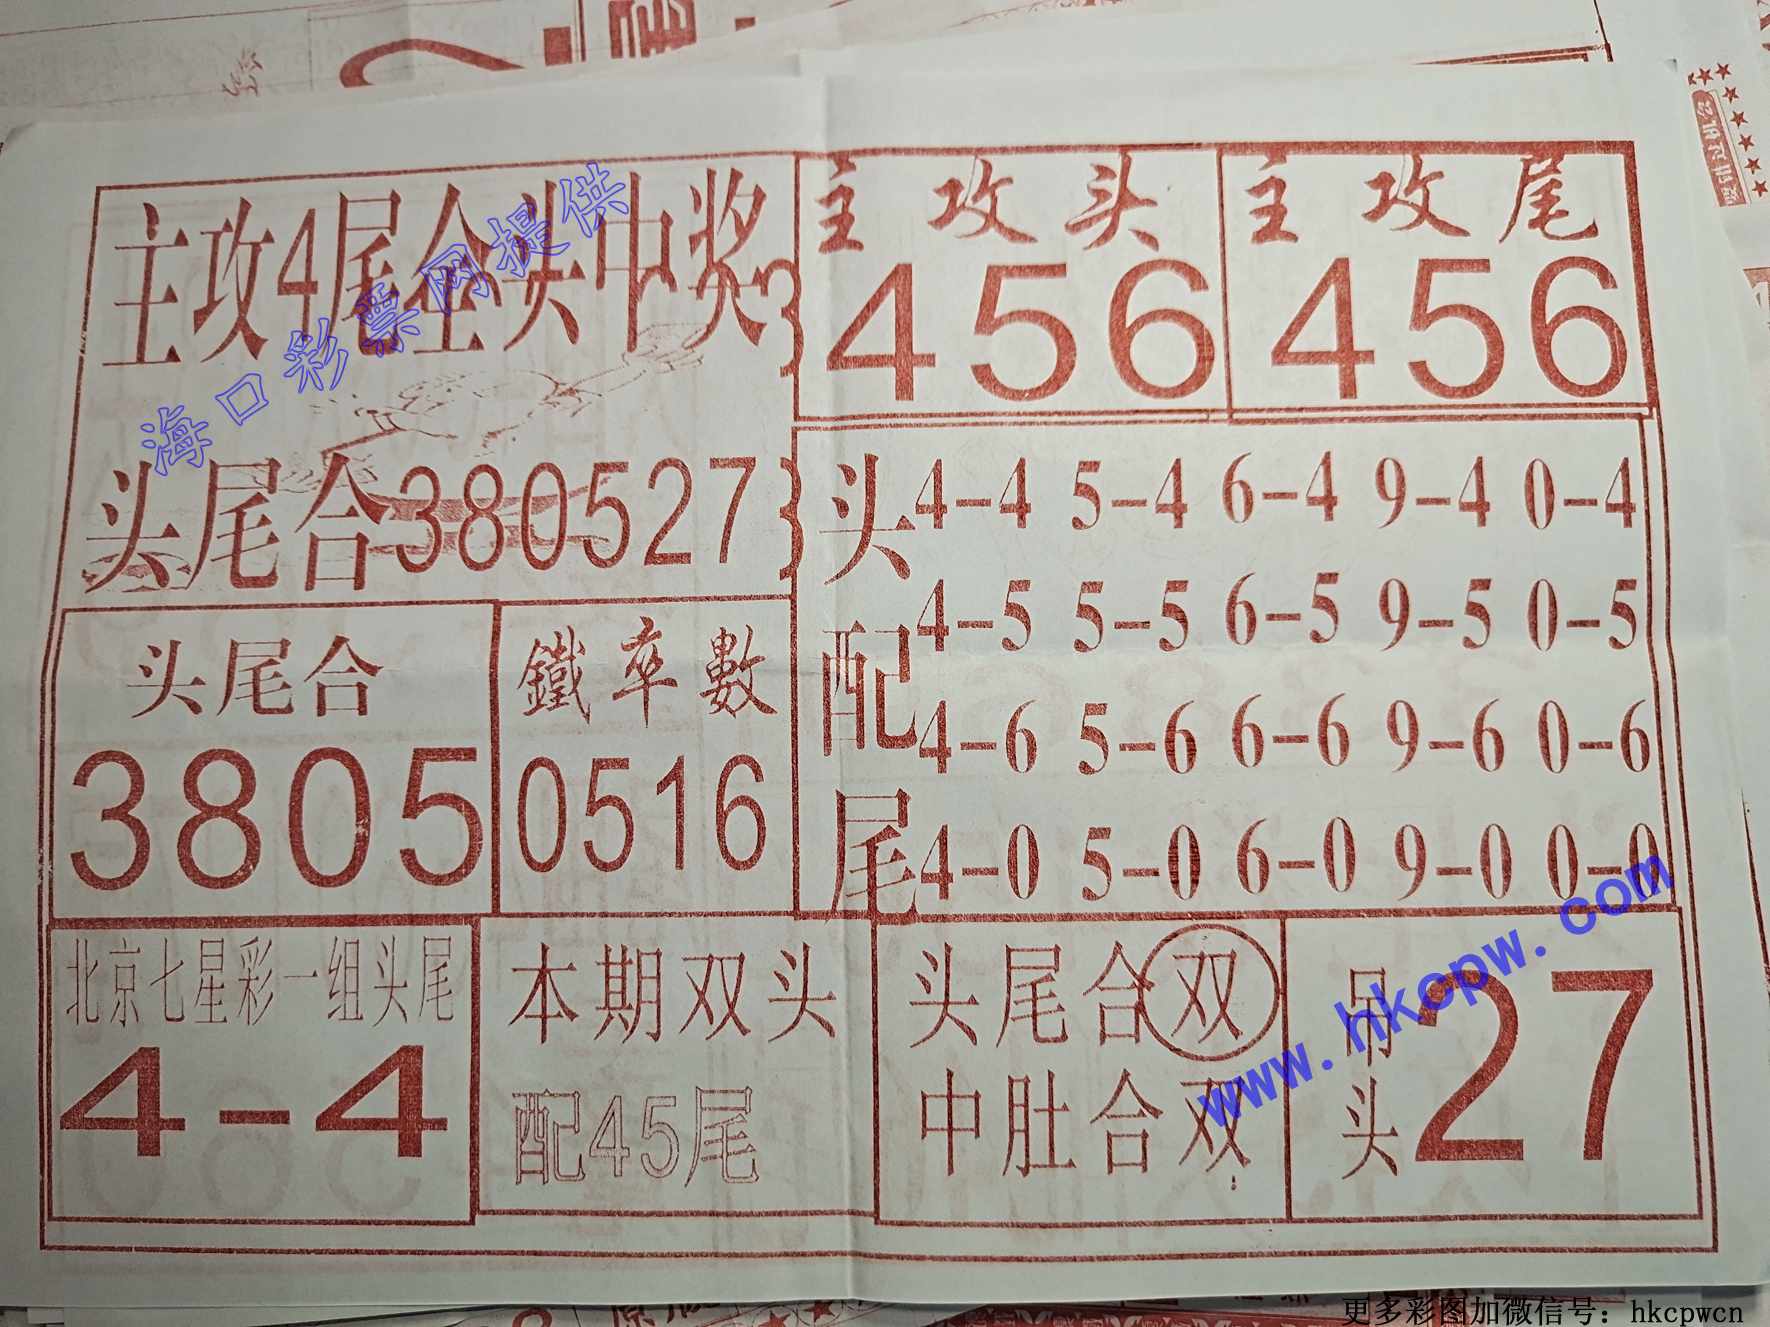 主攻4尾全头中奖
海口彩票网提供
头尾合380527
主攻头
456
主攻尾
456
头配尾
4-4 5-4 6-4 9-4 0-4
4-5 5-5 6-5 9-5 0-5
4-6 5-6 6-6 9-6 0-6
4-0 5-0 6-0 9-0 0-0
头尾合
3805
鐵率數
0516
北京七星彩一组头尾
4-4
本期双头
配45尾
头尾合双
中肚合双
吊头
27
www.hkcpw.com
更多彩图加微信号：hkcpwcn